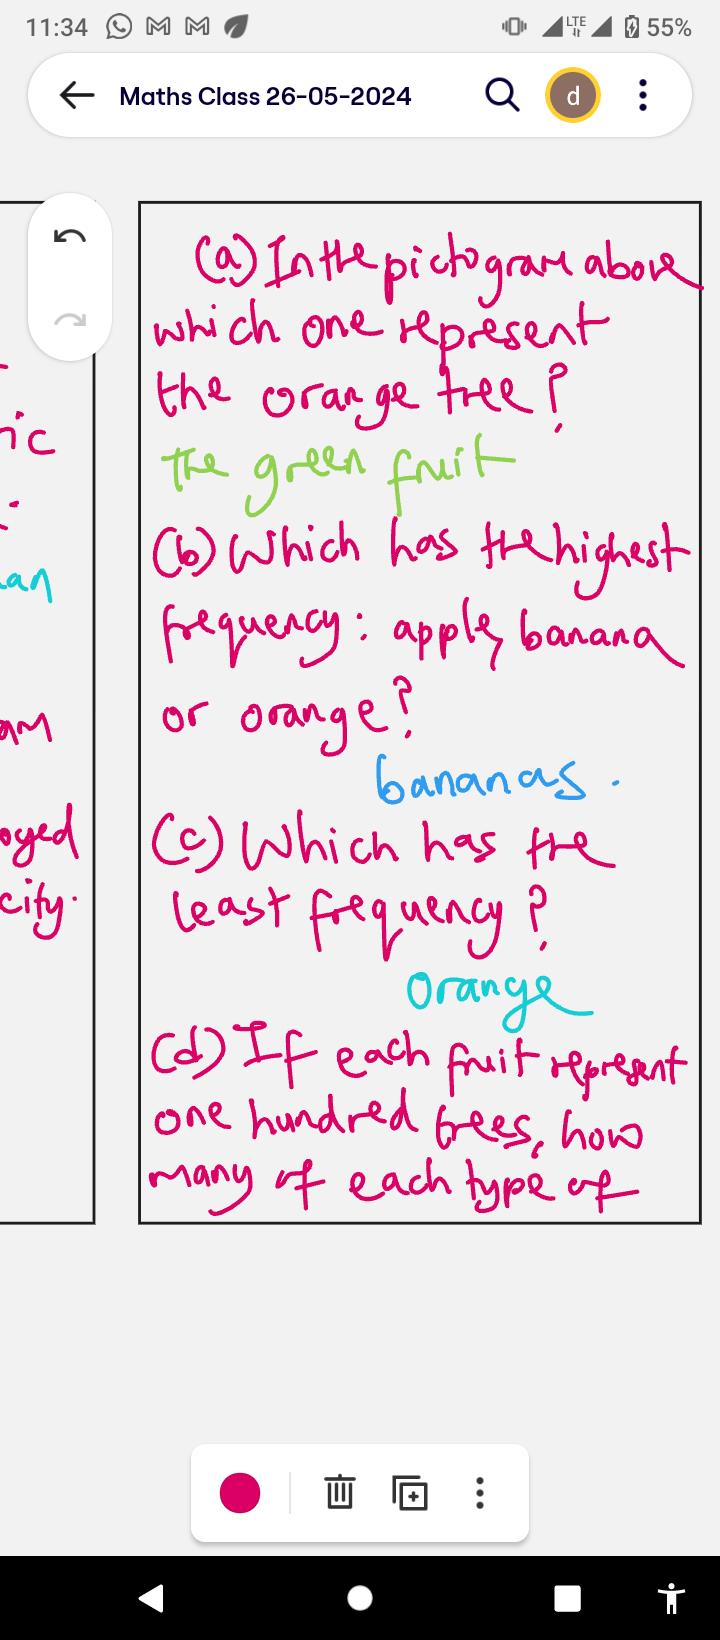 11:34
LTE
55%
Maths Class 26-05-2024
d
ric
an
am
oyed
city.
(a) In the pictogram above
which one represent
the orange tree?
The green fruit
(b) Which has the highest
frequency: apple, banana
or orange?
bananas.
(c) Which has the
least frequency?
Orange
(d) If each fruit represent
one hundred trees, how
many of each type of